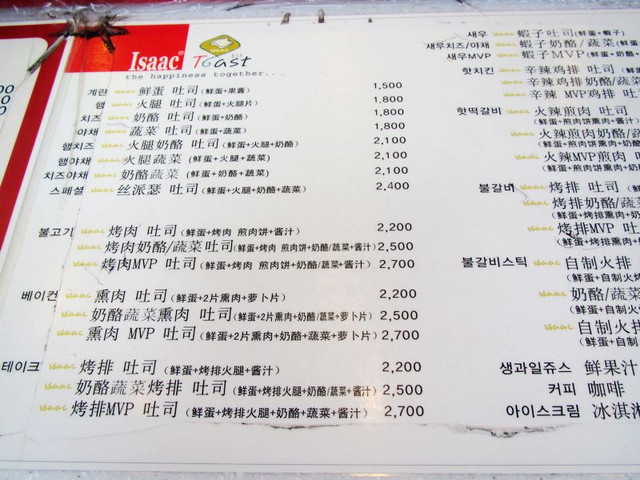 Isaac® Toast
the happiness together...
계란 isaac 鲜蛋 吐司(鲜蛋+果酱) 1,500
햄 isaac 火腿 吐司(鲜蛋+火腿片) 1,800
치즈 isaac 奶酪 吐司(鲜蛋+奶酪) 1,800
야채 isaac 蔬菜 吐司(鲜蛋+蔬菜) 1,800
햄치즈 isaac 火腿奶酪 吐司(鲜蛋+火腿+奶酪) 2,100
햄야채 isaac 火腿蔬菜 (鲜蛋+火腿+蔬菜) 2,100
치즈야채 isaac 奶酪蔬菜 (鲜蛋+奶酪+蔬菜) 2,100
스페셜 isaac 丝派瑟 吐司(鲜蛋+火腿+奶酪+蔬菜) 2,400
불고기 isaac 烤肉 吐司(鲜蛋+烤肉 煎肉饼+酱汁) 2,200
isaac 烤肉奶酪/蔬菜吐司(鲜蛋+烤肉 煎肉饼+奶酪/蔬菜+酱汁) 2,500
isaac 烤肉MVP 吐司(鲜蛋+烤肉 煎肉饼+奶酪+蔬菜+酱汁) 2,700
베이컨 isaac 熏肉 吐司(鲜蛋+2片熏肉+萝卜片) 2,200
isaac 奶酪蔬菜熏肉 吐司(鲜蛋+2片熏肉+奶酪/蔬菜+萝卜片) 2,500
isaac 熏肉 MVP 吐司(鲜蛋+2片熏肉+奶酪+蔬菜+萝卜片) 2,700
테이크 isaac 烤排 吐司(鲜蛋+烤排火腿+酱汁) 2,200
isaac 奶酪蔬菜烤排 吐司(鲜蛋+烤排火腿+奶酪/蔬菜+酱汁) 2,500
isaac 烤排MVP 吐司(鲜蛋+烤排火腿+奶酪+蔬菜+酱汁) 2,700
새우 isaac 蝦子吐司(鲜蛋+蝦子)
새우치즈/야채 isaac 蝦子奶酪/蔬菜(鲜蛋
새우MVP isaac 蝦子MVP(鲜蛋+奶酪+
핫치킨 isaac 辛辣鸡排 吐司(鲜蛋
isaac 辛辣鸡排奶酪/蔬菜
isaac 辛辣 MVP鸡排 吐
핫떡갈비 isaac 火辣煎肉 吐司
(鲜蛋+煎肉饼熏肉+酱汁)
isaac 火辣煎肉奶酪/蔬
(鲜蛋+煎肉饼熏肉+奶酪
isaac 火辣MVP煎肉
(鲜蛋+煎肉饼熏肉+奶酪
불갈비 isaac 烤排 吐司(鲜蛋
isaac 烤排奶酪/蔬菜
(鲜蛋+烤排熏肉+奶
isaac 烤排MVP 吐
(鲜蛋+烤排熏肉+
불갈비스틱 isaac 自制火排
(鲜蛋+自制火
isaac 奶酪/蔬菜
(鲜蛋+自制
isaac 自制火排
(鲜蛋+自制
생과일쥬스 鲜果汁
커피 咖啡
아이스크림 冰淇淋